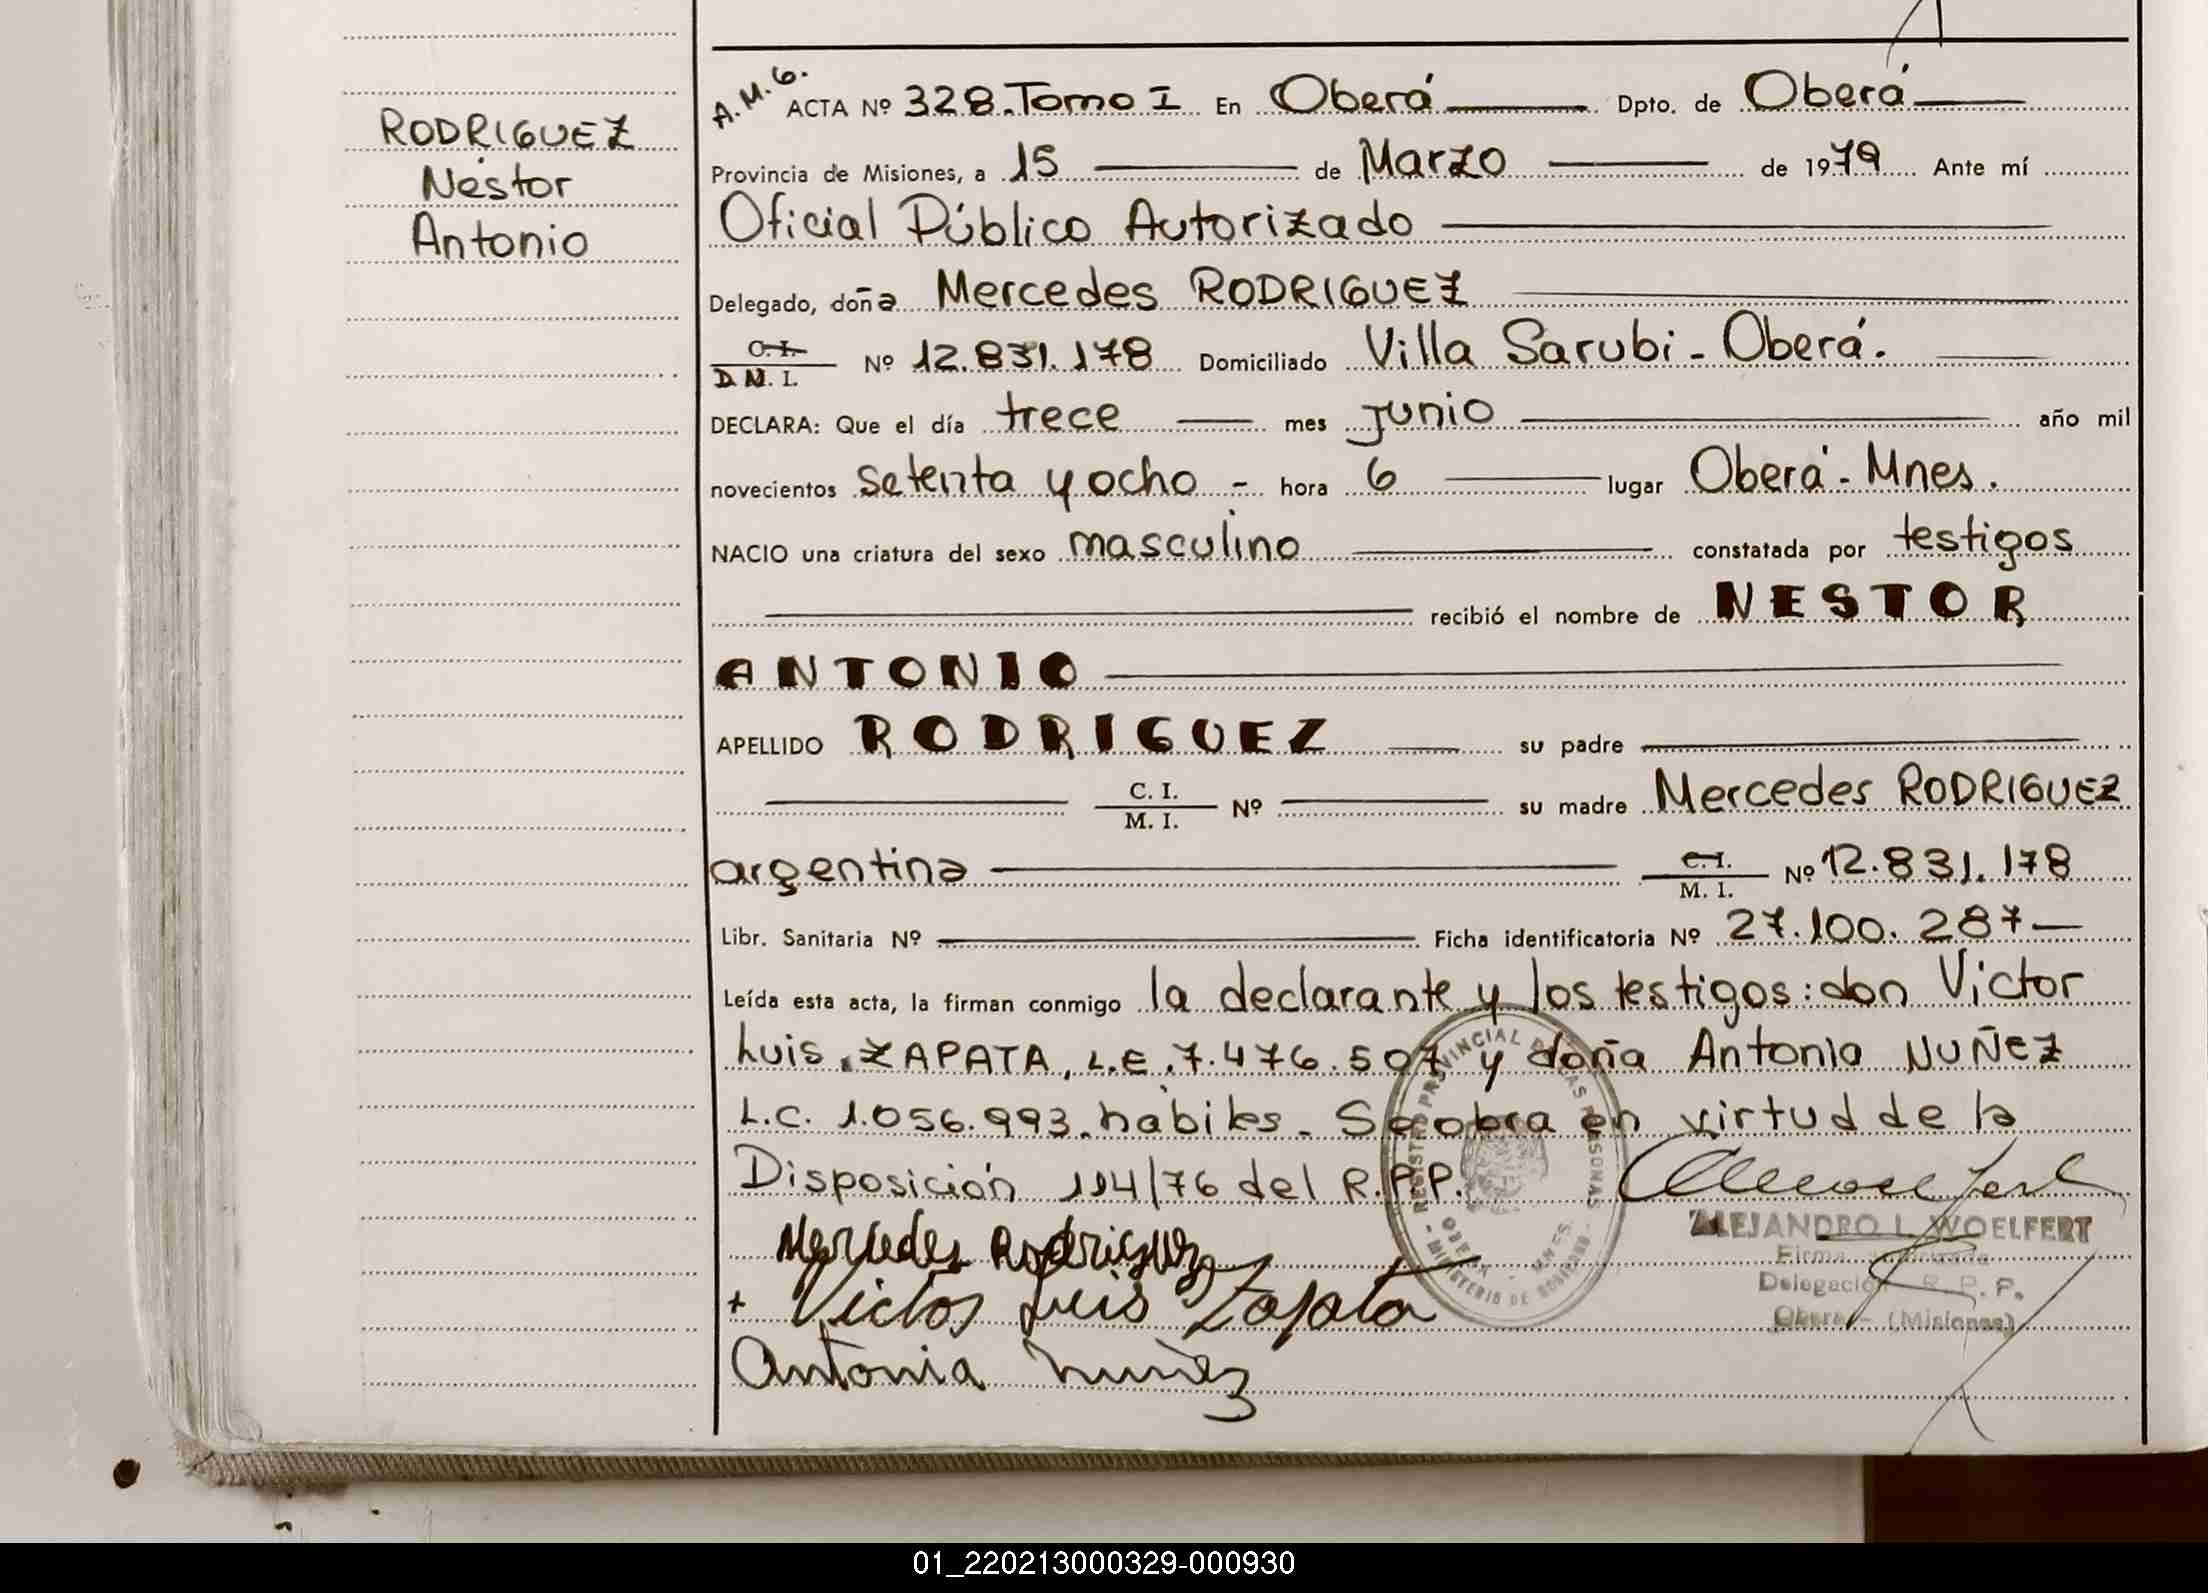 RODRIGUEZ
Néstor
Antonio
A.M.G.
ACTA Nº 328.Tomo I En Oberá Dpto. de Oberá
Provincia de Misiones, a 15 de Marzo de 1979 Ante mí
Oficial Público Autorizado
Delegado, doña Mercedes RODRIGUEZ
C. I.
D.N. I. Nº 12.831.178 Domiciliado Villa Sarubi - Oberá.
DECLARA: Que el día trece mes junio año mil
novecientos setenta y ocho - hora 6 lugar Oberá - Mnes.
NACIO una criatura del sexo masculino constatada por testigos
recibió el nombre de NESTOR
ANTONIO
APELLIDO RODRIGUEZ su padre
C. I.
M. I. Nº su madre Mercedes RODRIGUEZ
argentina C. I.
M. I. Nº 12.831.178
Libr. Sanitaria Nº Ficha identificatoria Nº 27.100.287-
Leída esta acta, la firman conmigo la declarante y los testigos: don Victor
Luis ZAPATA, L.E. 7.476.507 y doña Antonia NUÑEZ
L.C. 1.056.993. hábiles. Se obra en virtud de la
Disposición 114/76 del R.P.P.
Mercedes Rodriguez
+ Victor Luis Zapata
Antonia Nuñez
REGISTRO PROVINCIAL DE LAS PERSONAS
OBERA - MNES.
- MINISTERIO DE GOBIERNO -
ALEJANDRO L. WOELFERT
Firma Autorizada
Delegación R. P. P.
Oberá - (Misiones)
01_220213000329-000930